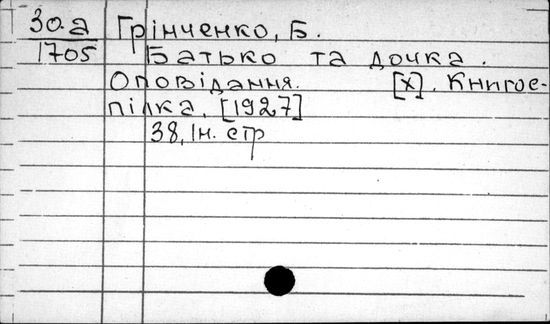 30.a Грінченко, Б.
1705 Батько та дочка.
Оповідання. [Х]. Книгос-
пілка, [1927]
38, Iн. стр